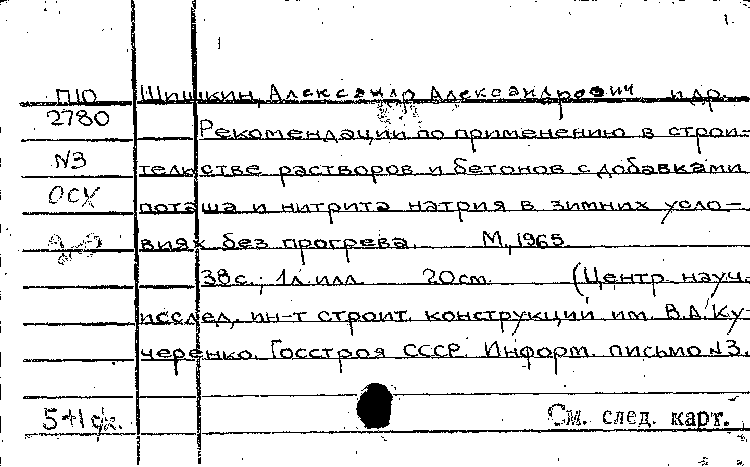 П10 Шишкин, Александр Александрович и др.
2780 Рекомендации по применению в строи-
N3 тельстве растворов и бетонов с добавками
ОСХ поташа и нитрита натрия в зимних усло-
виях без прогрева. М., 1965.
38с.; 1л. илл. 20см. (Центр. науч.
исслед. ин-т строит. конструкций им. В.А. Ку-
черенко. Госстроя СССР. Информ. письмо N3.
5+1 ск. См. след. карт.